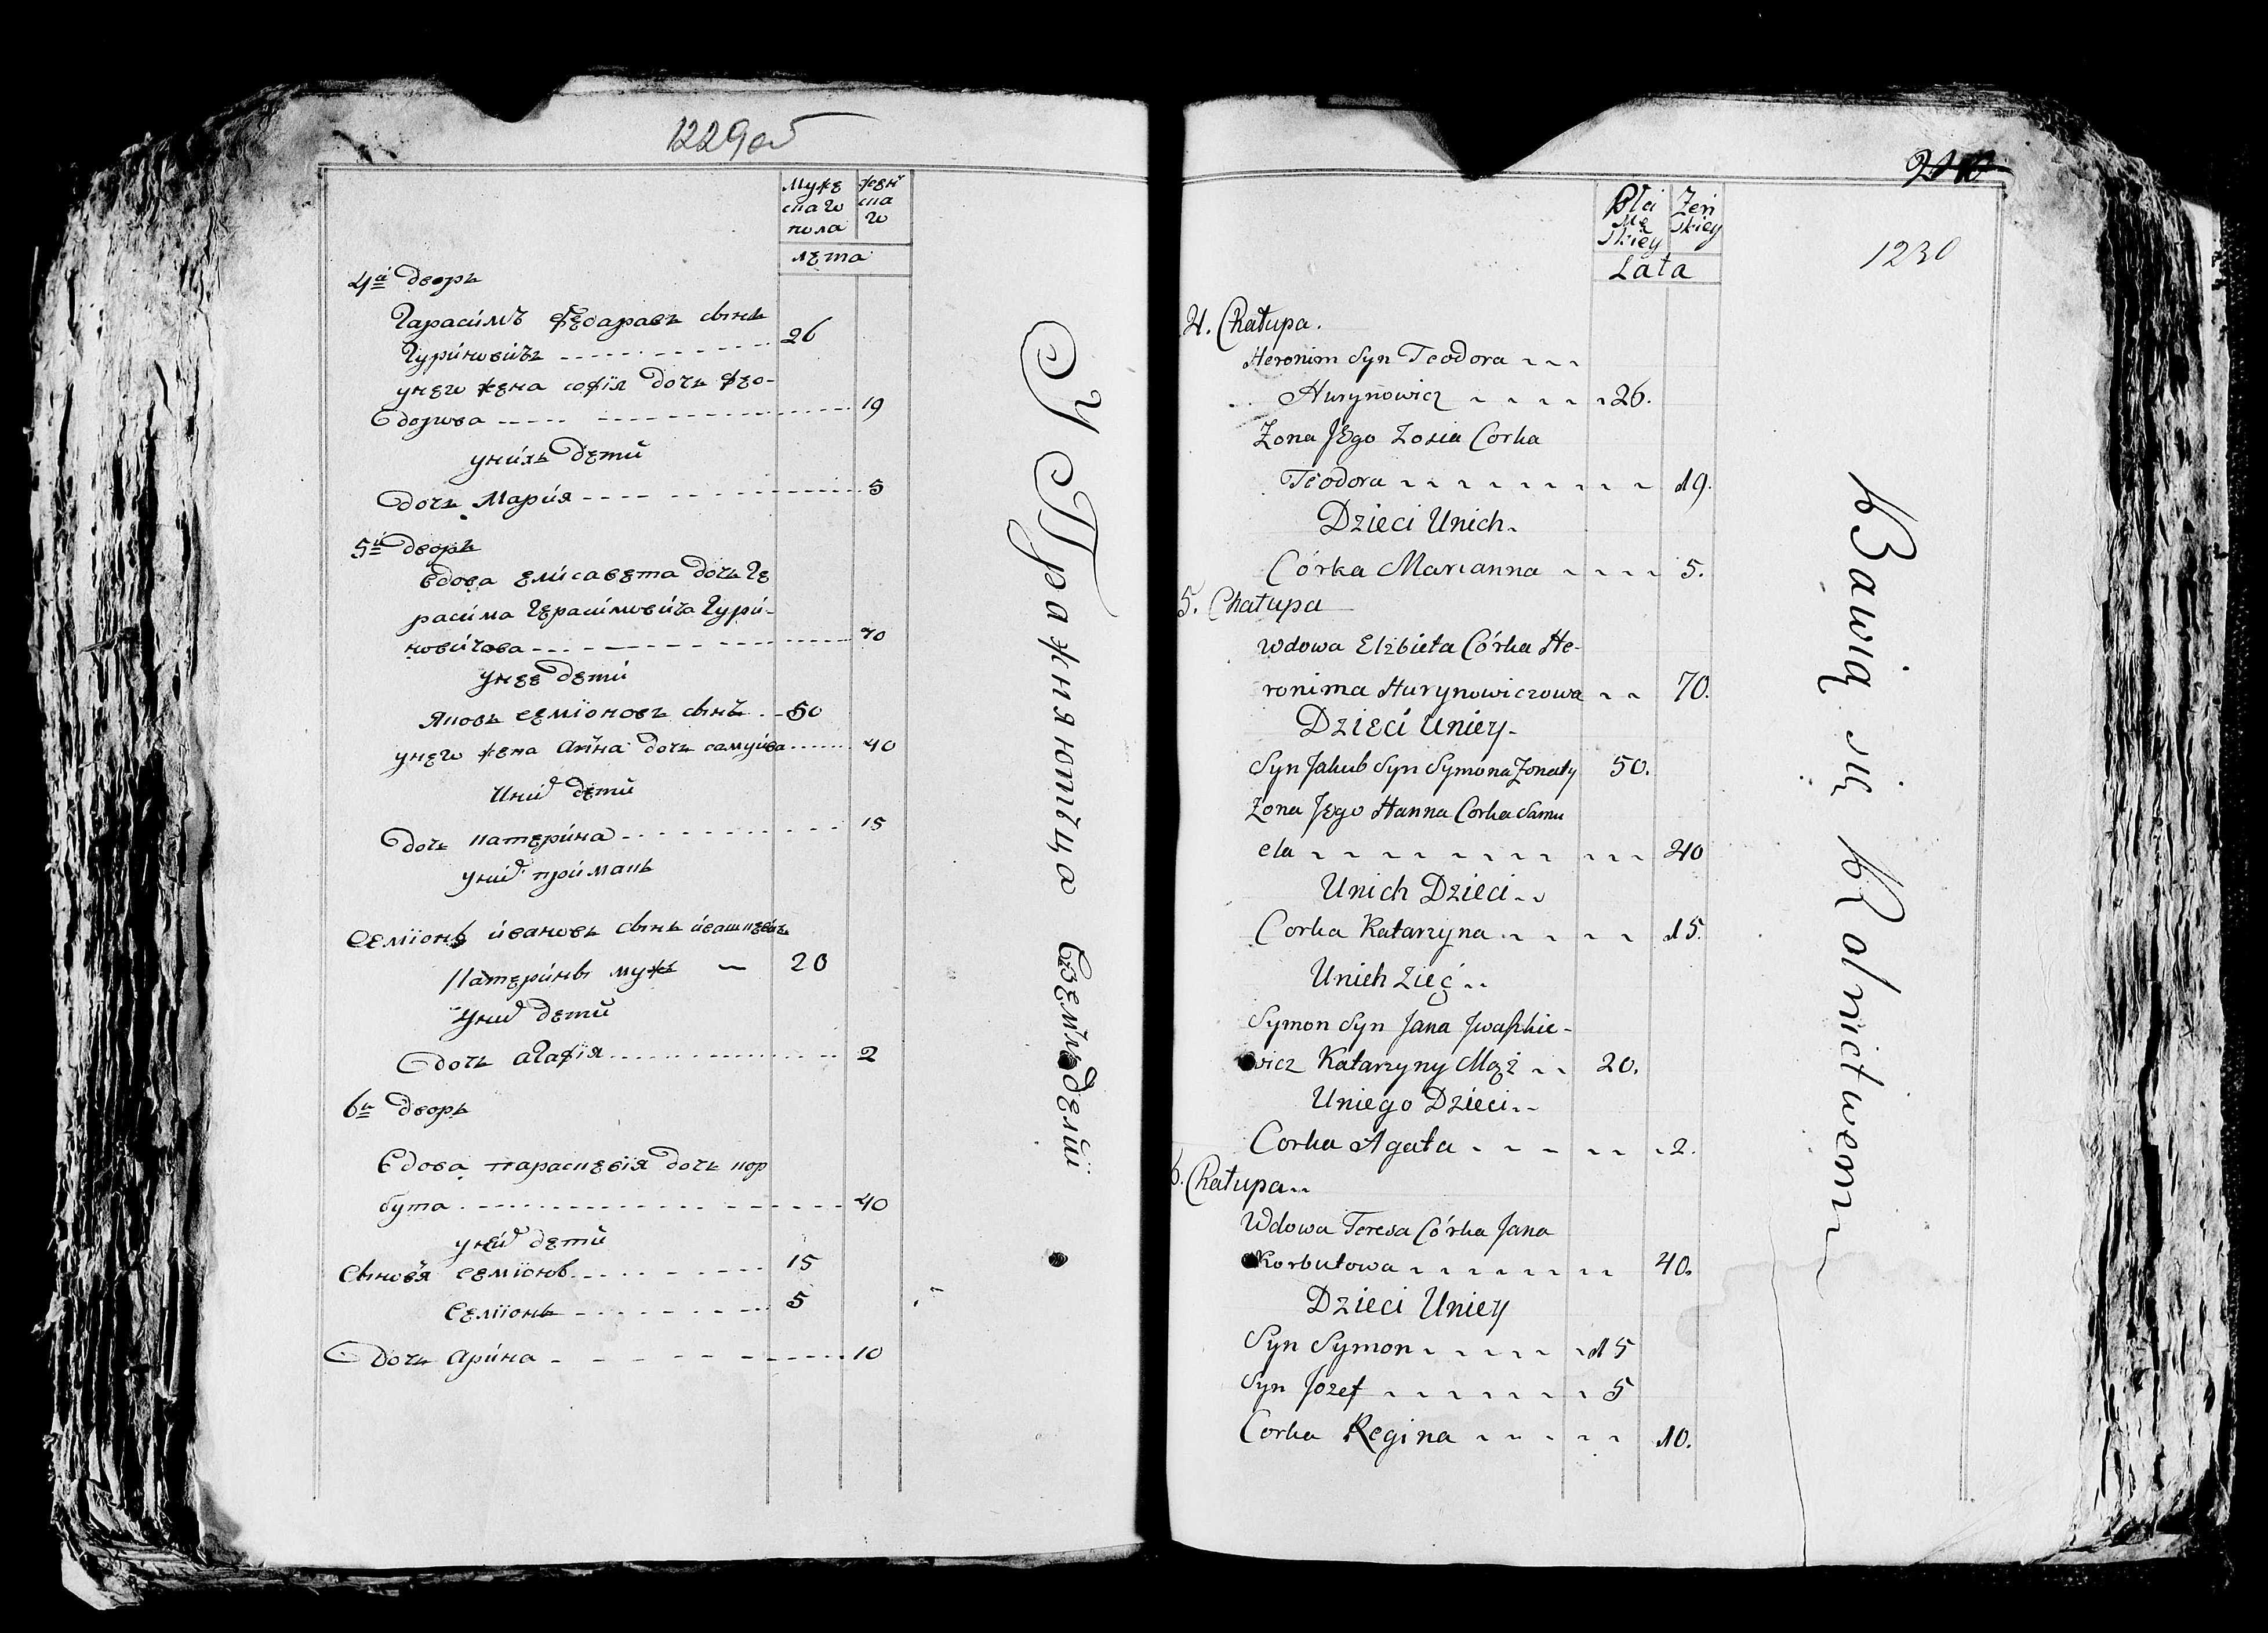 1229об
Муже
скаго
пола
женъ
ска
го
лета
4й дворъ
Гарасимъ Федаравъ сынъ
Гуриновичъ 26
унего жена софїя дочь Фео-
дорова 19
унихъ дети
дочь Марїя 5
5й дворъ
вдова елисавета дочь Ге
расима Герасимовича Гури-
новичова 70
унее дети
Яковъ семїоновъ сынъ 50
унего жена анна дочь самуйва 40
Уних дети
дочь катерина 15
уних примакъ
Семїонъ ивановъ сынъ ивашкевичъ
Катеринъ мужъ 20
Уних дети
дочь агафїя 2
6й дворъ
Вдова параскевїя дочь кор
бута 40
уней дети
сыновя семїонъ 15
семїонъ 5
дочь арина 10
Упражняютца вземледелїи
240
1230
Płci
Mę
Skiey
Żeń
Skiey
Lata
4. Chałupa.
Heronim Syn Teodora
Hurynowicz 26.
Zona Jego Zosia Corka
Teodora 19.
Dzieci Unich
Córka Marianna 5.
5. Chałupa
Wdowa Elzbieta Córka He-
ronima Hurynowiczowa 70.
Dzieci Uniey
Syn Jakub Syn Symona Zonaty 50.
Zona Jego Hanna Corka Samu
ela 40
Unich Dzieci
Corka Katarzyna 15.
Unich Zięć
Symon Syn Jana Jwaszkie-
wicz Katarzyny Mąż 20.
Uniego Dzieci
Corka Agata 2.
6. Chałupa
Wdowa Teresa Córka Jana
Korbutowa 40.
Dzieci Uniey
Syn Symon 15
Syn Jozef 5
Corka Regina 10.
Bawią się Rolnictwem